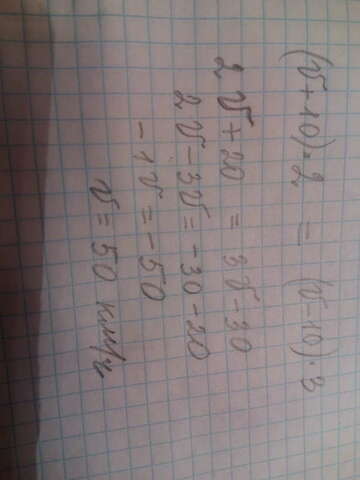 (v+10)·2 = (v-10)·3
2v+20 = 3v-30
2v-3v=-30-20
-1v=-50
v=50 км/ч